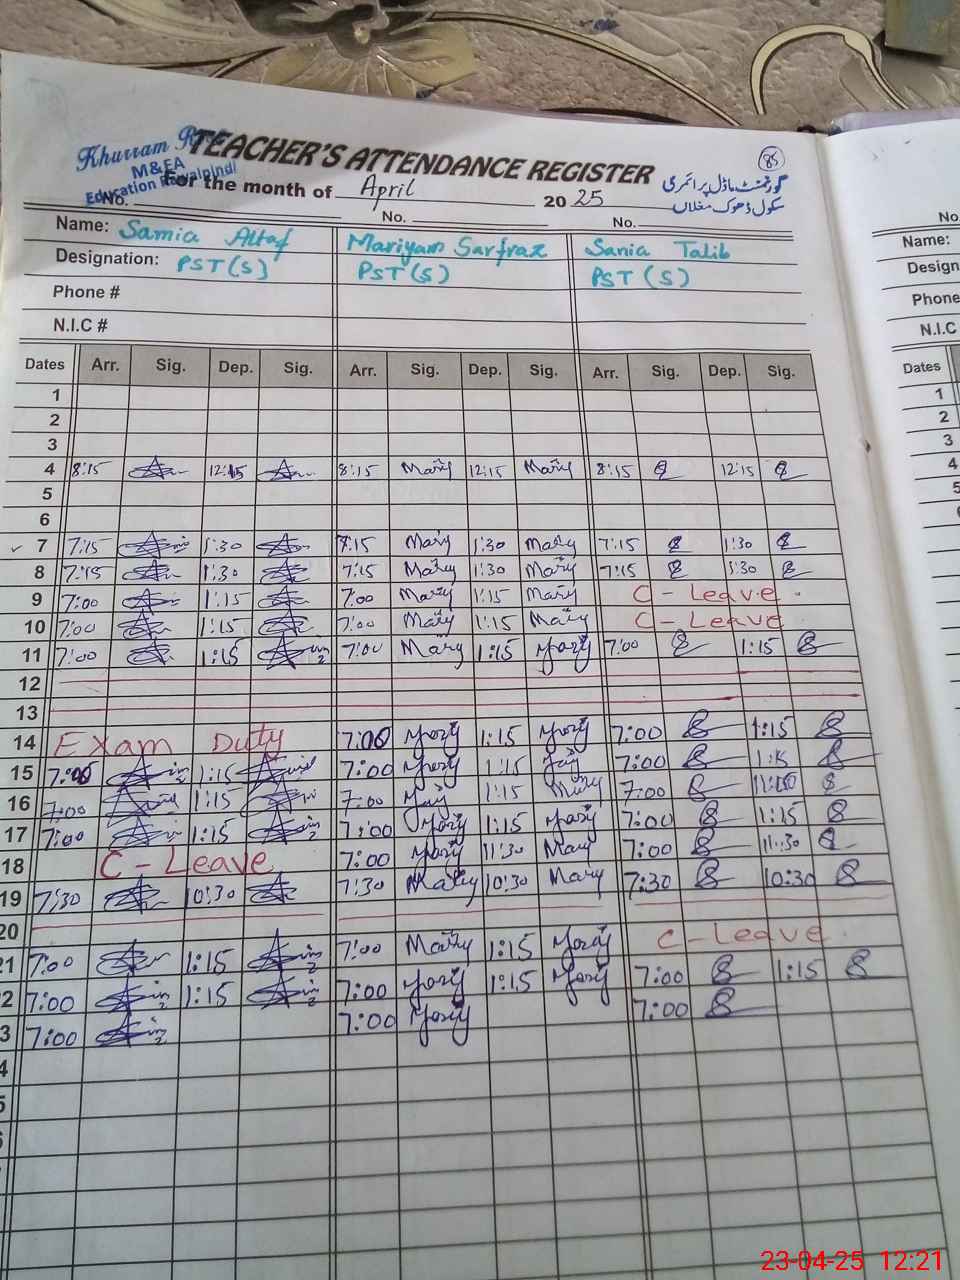 Khurram R
M&EA
Education Rawalpindi
TEACHER'S ATTENDANCE REGISTER
85
For the month of April 2025
گورنمنٹ ماڈل پرائمری
سکول ڈھوک مغلاں
No. No. No.
Name: Samia Altaf Mariyam Sarfraz Sania Talib
Designation: PST(S) PST(S) PST(S)
Phone #
N.I.C #
Dates Arr. Sig. Dep. Sig. Arr. Sig. Dep. Sig. Arr. Sig. Dep. Sig.
1
2
3
4 8:15 12:15 8:15 Mary 12:15 Mary 8:15 12:15
5
6
7 7:15 1:30 7:15 Mary 1:30 Mary 7:15 1:30
8 7:15 1:30 7:15 Mary 1:30 Mary 7:15 1:30
9 7:00 1:15 7:00 Mary 1:15 Mary C-Leave
10 7:00 1:15 7:00 Mary 1:15 Mary C-Leave
11 7:00 1:15 7:00 Mary 1:15 Mary 7:00 1:15
12
13
14 Exam Duty 7:00 Mary 1:15 Mary 7:00 1:15
15 7:00 1:15 7:00 Mary 1:15 7:00 1:15
16 7:00 1:15 7:00 1:15 Mary 7:00
17 7:00 1:15 7:00 Mary 1:15 Mary 7:00 1:15
18 C-Leave 7:00 Mary 11:30 Mary 7:00 11:30
19 7:30 10:30 7:30 Mary 10:30 Mary 7:30 10:30
20
21 7:00 1:15 7:00 Mary 1:15 Mary C-Leave
2 7:00 1:15 7:00 Mary 1:15 Mary 7:00 1:15
3 7:00 7:00 Mary 7:00
4
5
No.
Name:
Design
Phone
N.I.C
Dates
1
2
3
4
5
23-04-25 12:21